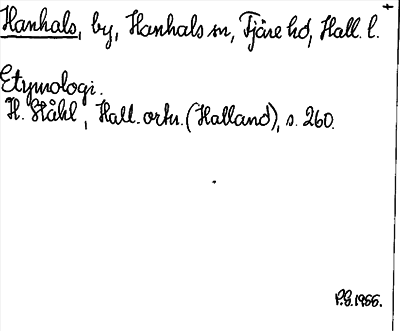 Hanhals, by, Hanhals sn, Fjäre hd, Hall. l.
Etymologi.
H. Ståhl, Hall. ortn. (Halland), s. 260.
P.G. 1966.